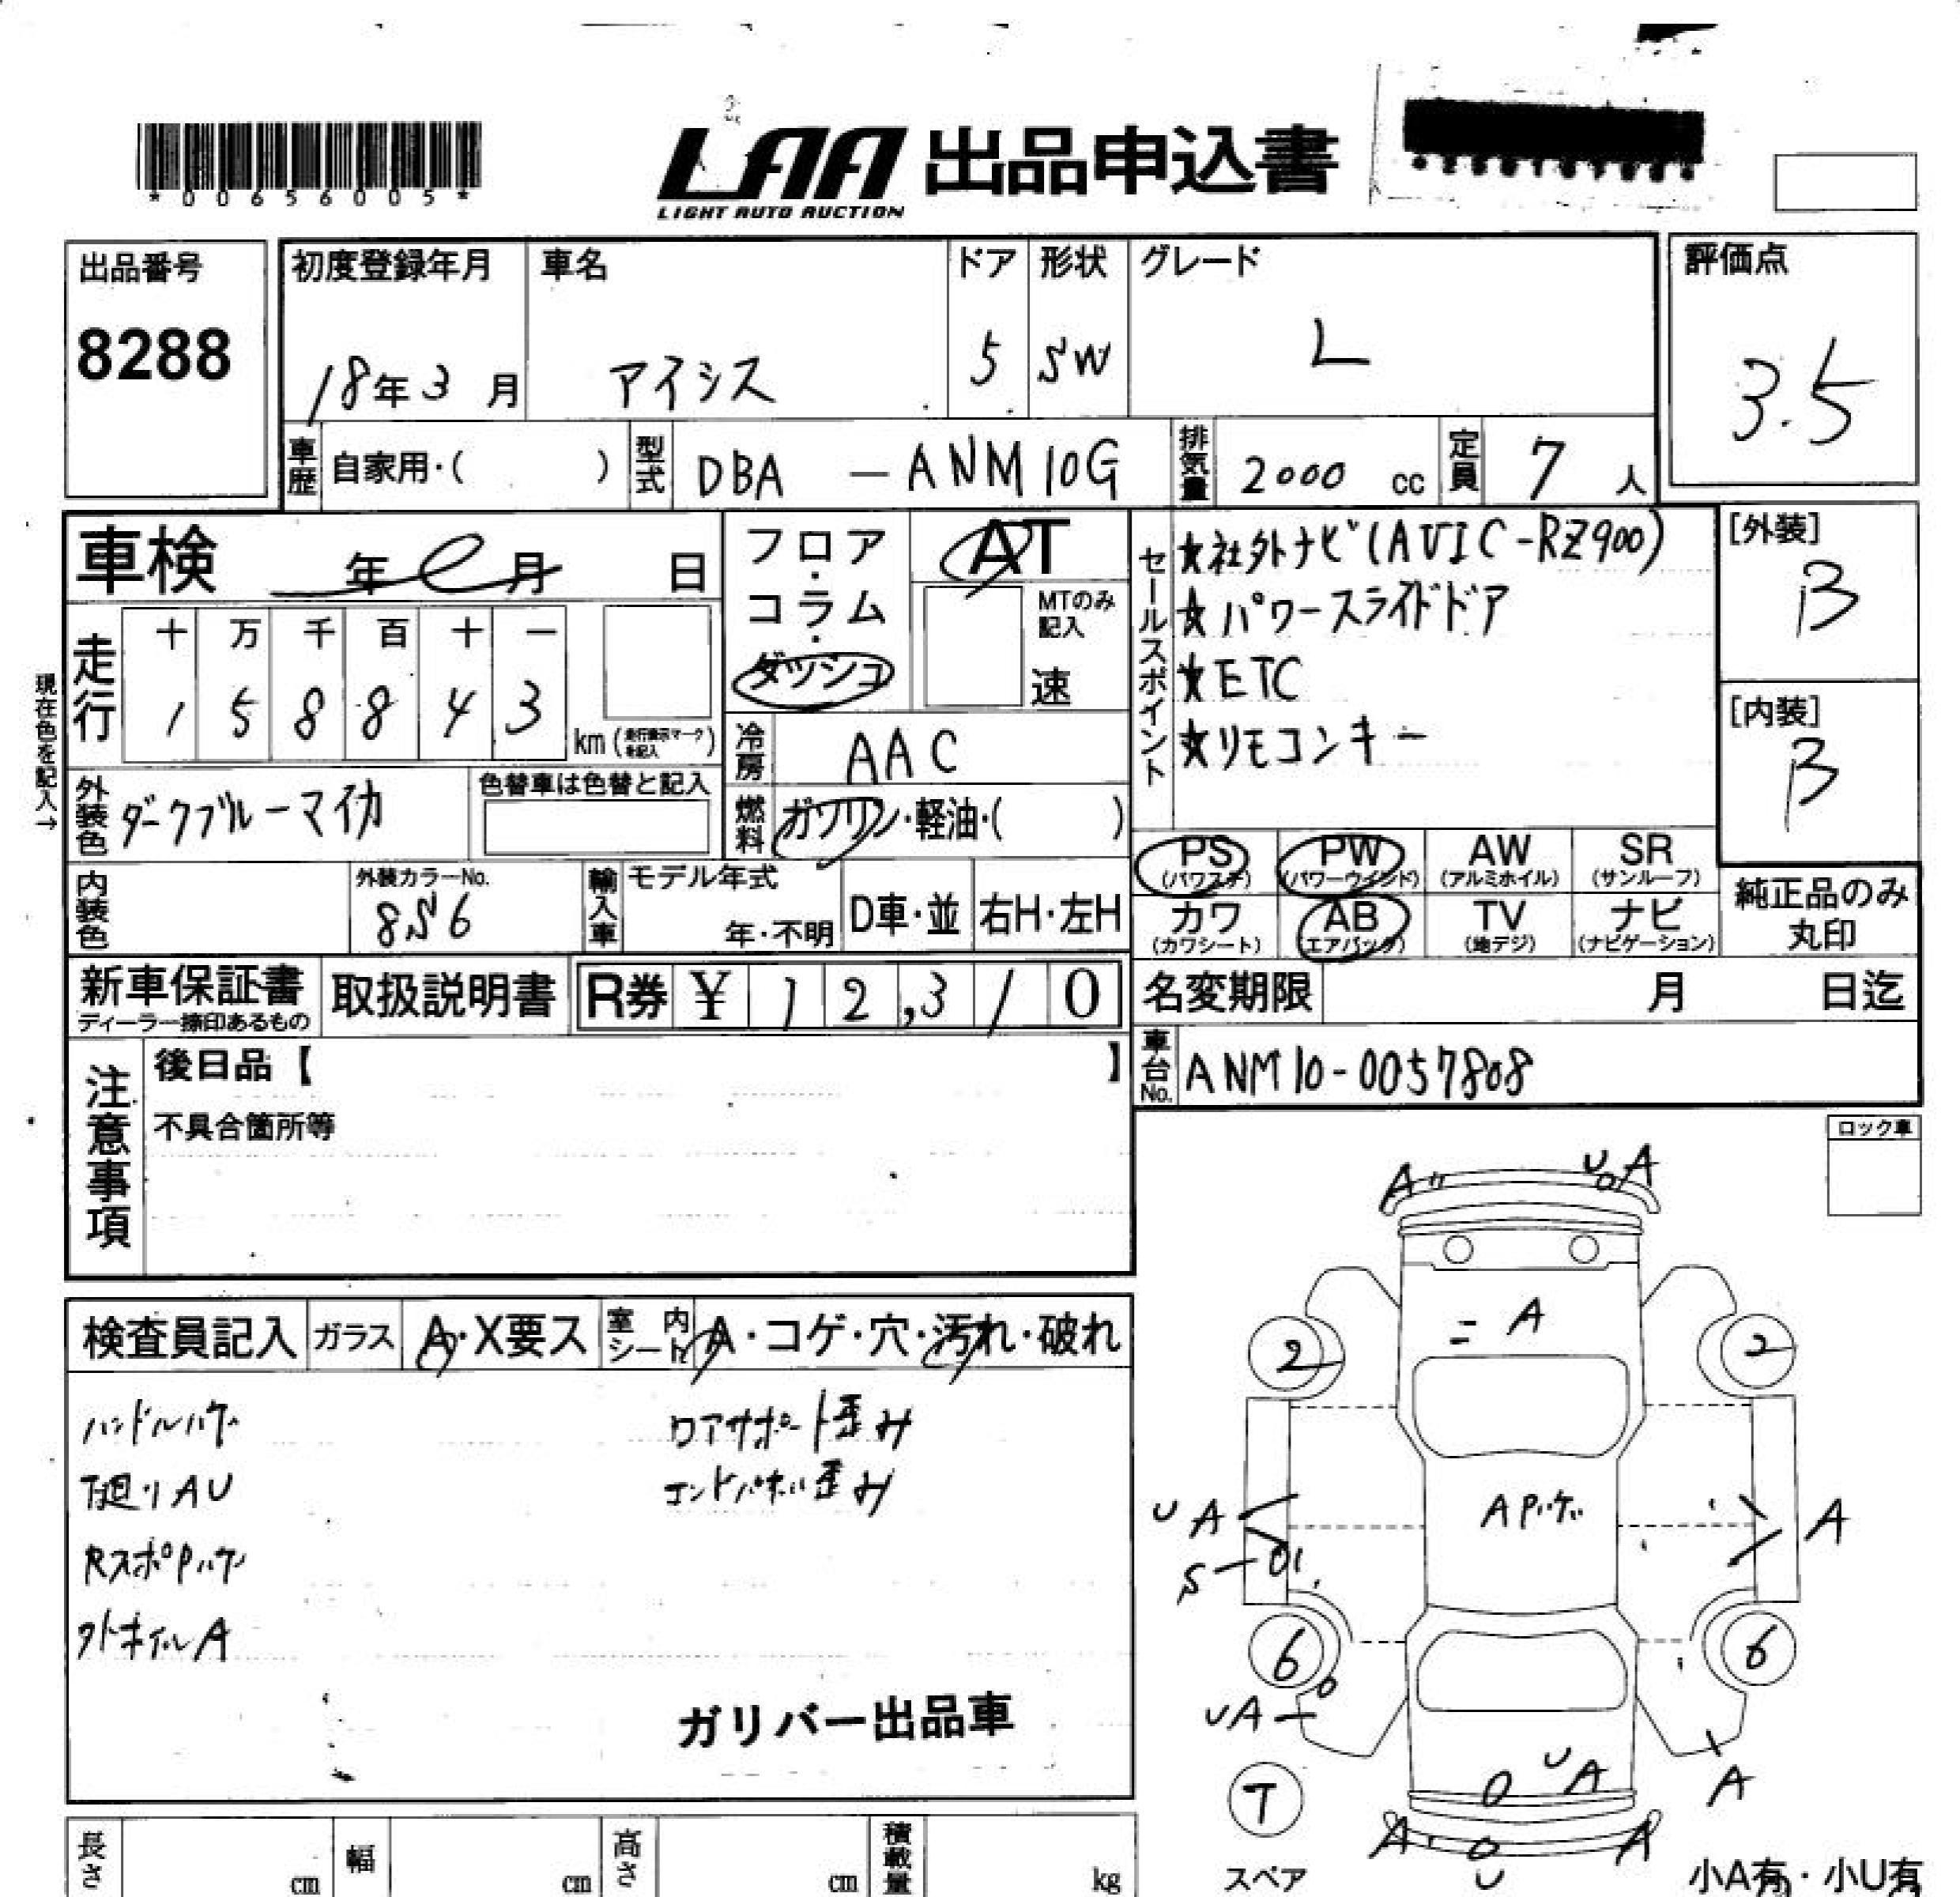 *00656005*
LAA 出品申込書
LIGHT AUTO AUCTION
出品番号
8288
初度登録年月
18年3月
車名
アイシス
ドア
5
形状
SW
グレード
L
評価点
3.5
車歴
自家用・( )
型式
DBA － ANM10G
排気量
2000 cc
定員
7 人
車検 年 月 日
走行
十 万 千 百 十 一
1 5 8 8 4 3
km
現在色を記入→
フロア・コラム・ダッシュ
AT
MTのみ記入
速
冷房
AAC
燃料
ガソリン・軽油・( )
セールスポイント
★社外ナビ(AVIC-RZ900)
★パワースライドドア
★ETC
★リモコンキー
[外装]
B
[内装]
B
外装色
ダークブルーマイカ
色替車は色替と記入
内装色
外装カラーNo.
8S6
輸入車
モデル年式
年・不明
D車・並
右H・左H
PS (パワステ)
PW (パワーウインド)
AW (アルミホイル)
SR (サンルーフ)
カワ (カワシート)
AB (エアバック)
TV (地デジ)
ナビ (ナビゲーション)
純正品のみ丸印
新車保証書
ディーラー捺印あるもの
取扱説明書
R券 ¥ 12,310
名変期限 月 日迄
車台No.
ANM10-0057808
注意事項
後日品【 】
不具合箇所等
ロック車
検査員記入
ガラス
A・X要ス
室内シート
A・コゲ・穴・汚れ・破れ
ハンドルハゲ
下廻りAU
RスポPハゲ
タトホイルA
コアサポート歪み
エンドパネル歪み
ガリバー出品車
A
U A
A
2
2
U A
S
APハゲ
A
6
6
UA
U A
A
T
スペア
A
U
A
小A有・小U有
長さ cm
幅 cm
高さ cm
積載量 kg